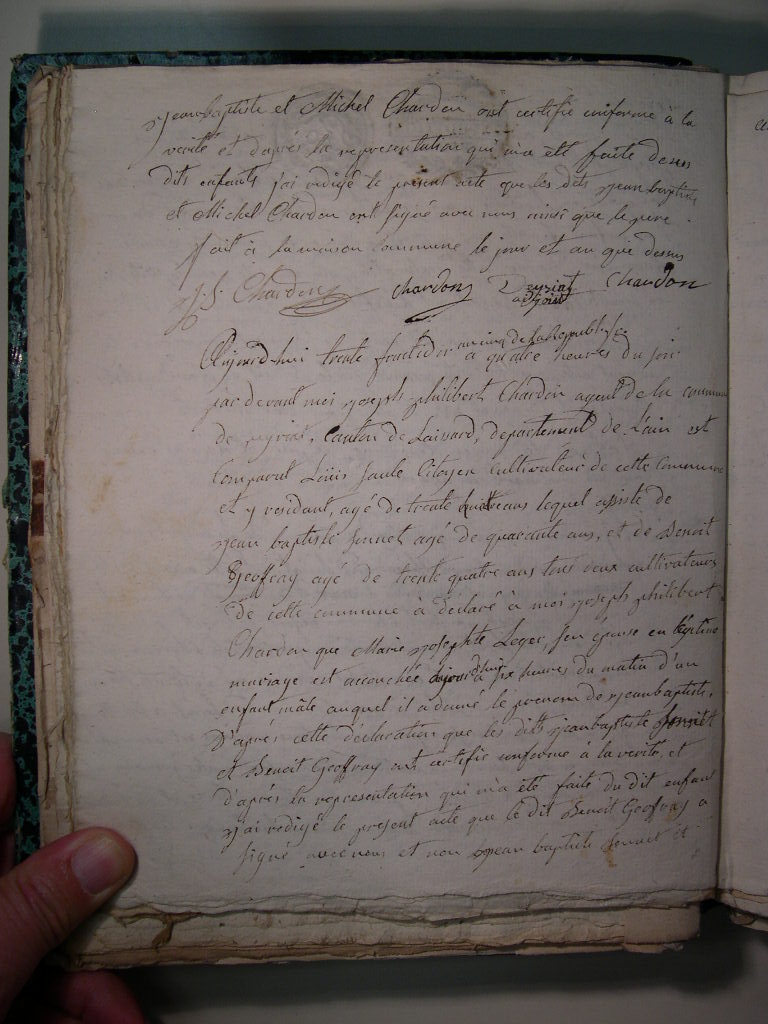 jeanbaptiste et Michel Chardon ont certifié conforme à la
verité et d'après la representation qui m'a eté faite desus
dits enfants j'ai redigé le present acte que les dits jean baptiste
et Michel Chardon ont signé avec nous ainsi que le pere
fait à la maison commune le jour et an que dessus
J. S. Chardon chardon adjoint Chardon
an cinq de la Republ.
Aujourd-hui trente fructidor à quatre heures du soir
par devant moi joseph philibert Chardon agent de la commune
de peyriat, canton de Leissard, departement de L'ain est
Comparut Loüis Citoyen Cultivateur de cette Commune
et y residant, agé de trente huit ans lequel assisté de
jean baptiste Sonnet agé de quarante ans, et de Benoit
Geoffray agé de trente quatre ans tous deux cultivateurs
de cette commune à déclaré à moi joseph philibert
Chardon que Marie josephte Leger, son épouse en légitime
mariage est accouchée aujourd'hui à six heures du matin d'un
enfant mâle auquel il a donné le prenom de jeanbaptiste.
D'aprés cette déclaration que les dits jeanbaptiste Sonnet
et Benoit Geoffray ont certifié conforme à la verité, et
d'aprés la representation qui m'a été faite du dit enfant
j'ai redigé le present acte que le dit Benoit Geoffray a
signé avec nous et non jean baptiste Sonnet et